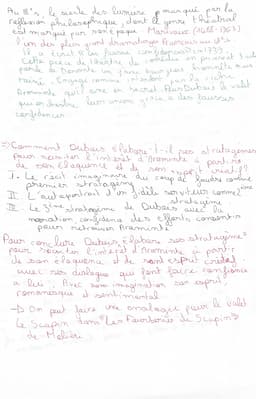 Au 18e s, le siècle des lumière marqué par la
réflexion philosophique, dont le genre théâtral
est marqué par son époque Marivaux (1688-1763)
l'un des plus grand dramaturge Français du 18e
Il a écrit "les fausse confidences" en 1737.
Cette pièce de théâtre de comédie en prose et
parle de Dorante un jeune
engagé comme intendant par la riche
Araminte qu'il aime en secret. Dubois le valet
leur union grâce à des fausses
confidences.
=> Comment Dubois élabore-t-il ses stratagèmes
pour susciter l'intérêt d'Araminte à partir
de son éloquence et de son esprit créatif?
I. Le récit imaginaire du coup de foudre comme
premier stratagème
II. L'autoportrait d'un fidèle serviteur comme 2ème
stratagème
III. Le 3ème stratagème de Dubois avec la
confidence des efforts consentis
pour retrouver Araminte
Pour conclure Dubois élabore ses stratagèmes
pour susciter l'intérêt d'Araminte à partir
de son éloquence et de son esprit créatif
avec ses dialogue qui font faire confiance
à lui. Avec son imagination son esprit
romanesque et sentimental.
-> On peut faire une analogie pour le valet
de Scapin dans "Les Fourberies de Scapin"
de Molière.